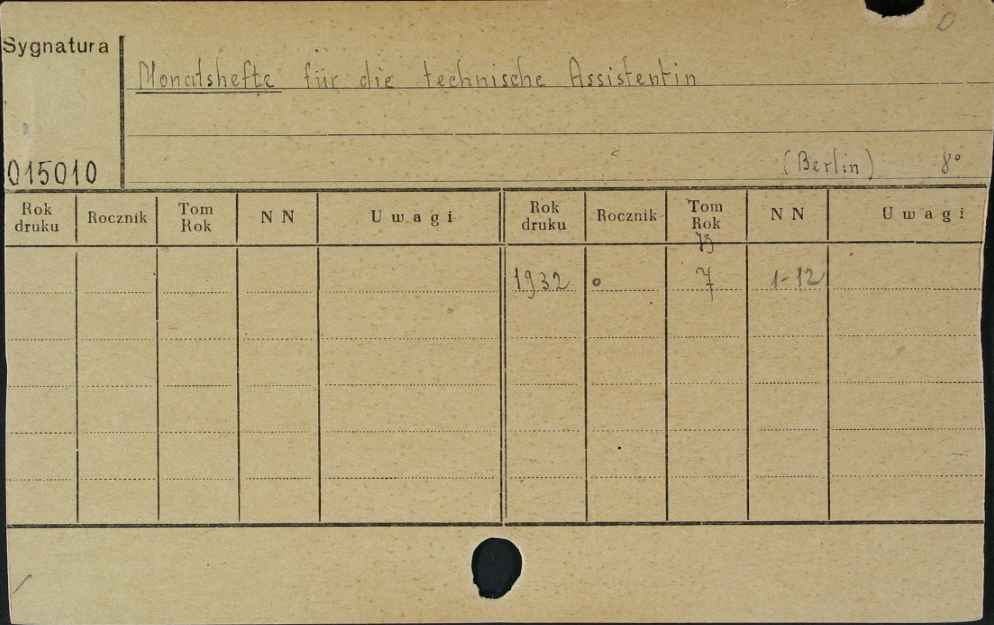 Sygnatura
Monatshefte für die technische Assistentin
(Berlin) 8°
015010
Rok druku Rocznik Tom Rok NN Uwagi Rok druku Rocznik Tom Rok NN Uwagi
1932 7 1-12